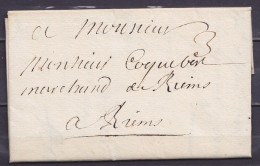 a Monsieur
3
Monsieur Coquebert
marchand de Reims
a Reims